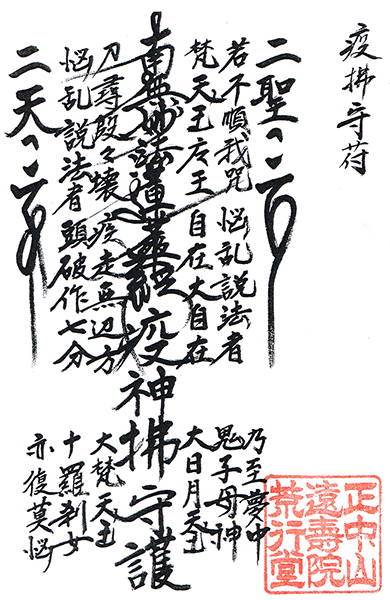 疫拂守苻
二聖
若不順我咒 悩乱説法者
梵天王广王 自在大自在
南無妙法蓮華経 疫神拂守護
刀尋段々壊 疾走無辺方
悩乱説法者 頭破作七分
二天
乃至夢中
鬼子母神
大日月天王
大梵天王
十羅刹女
亦復莫悩
正中山
遠壽院
荒行堂